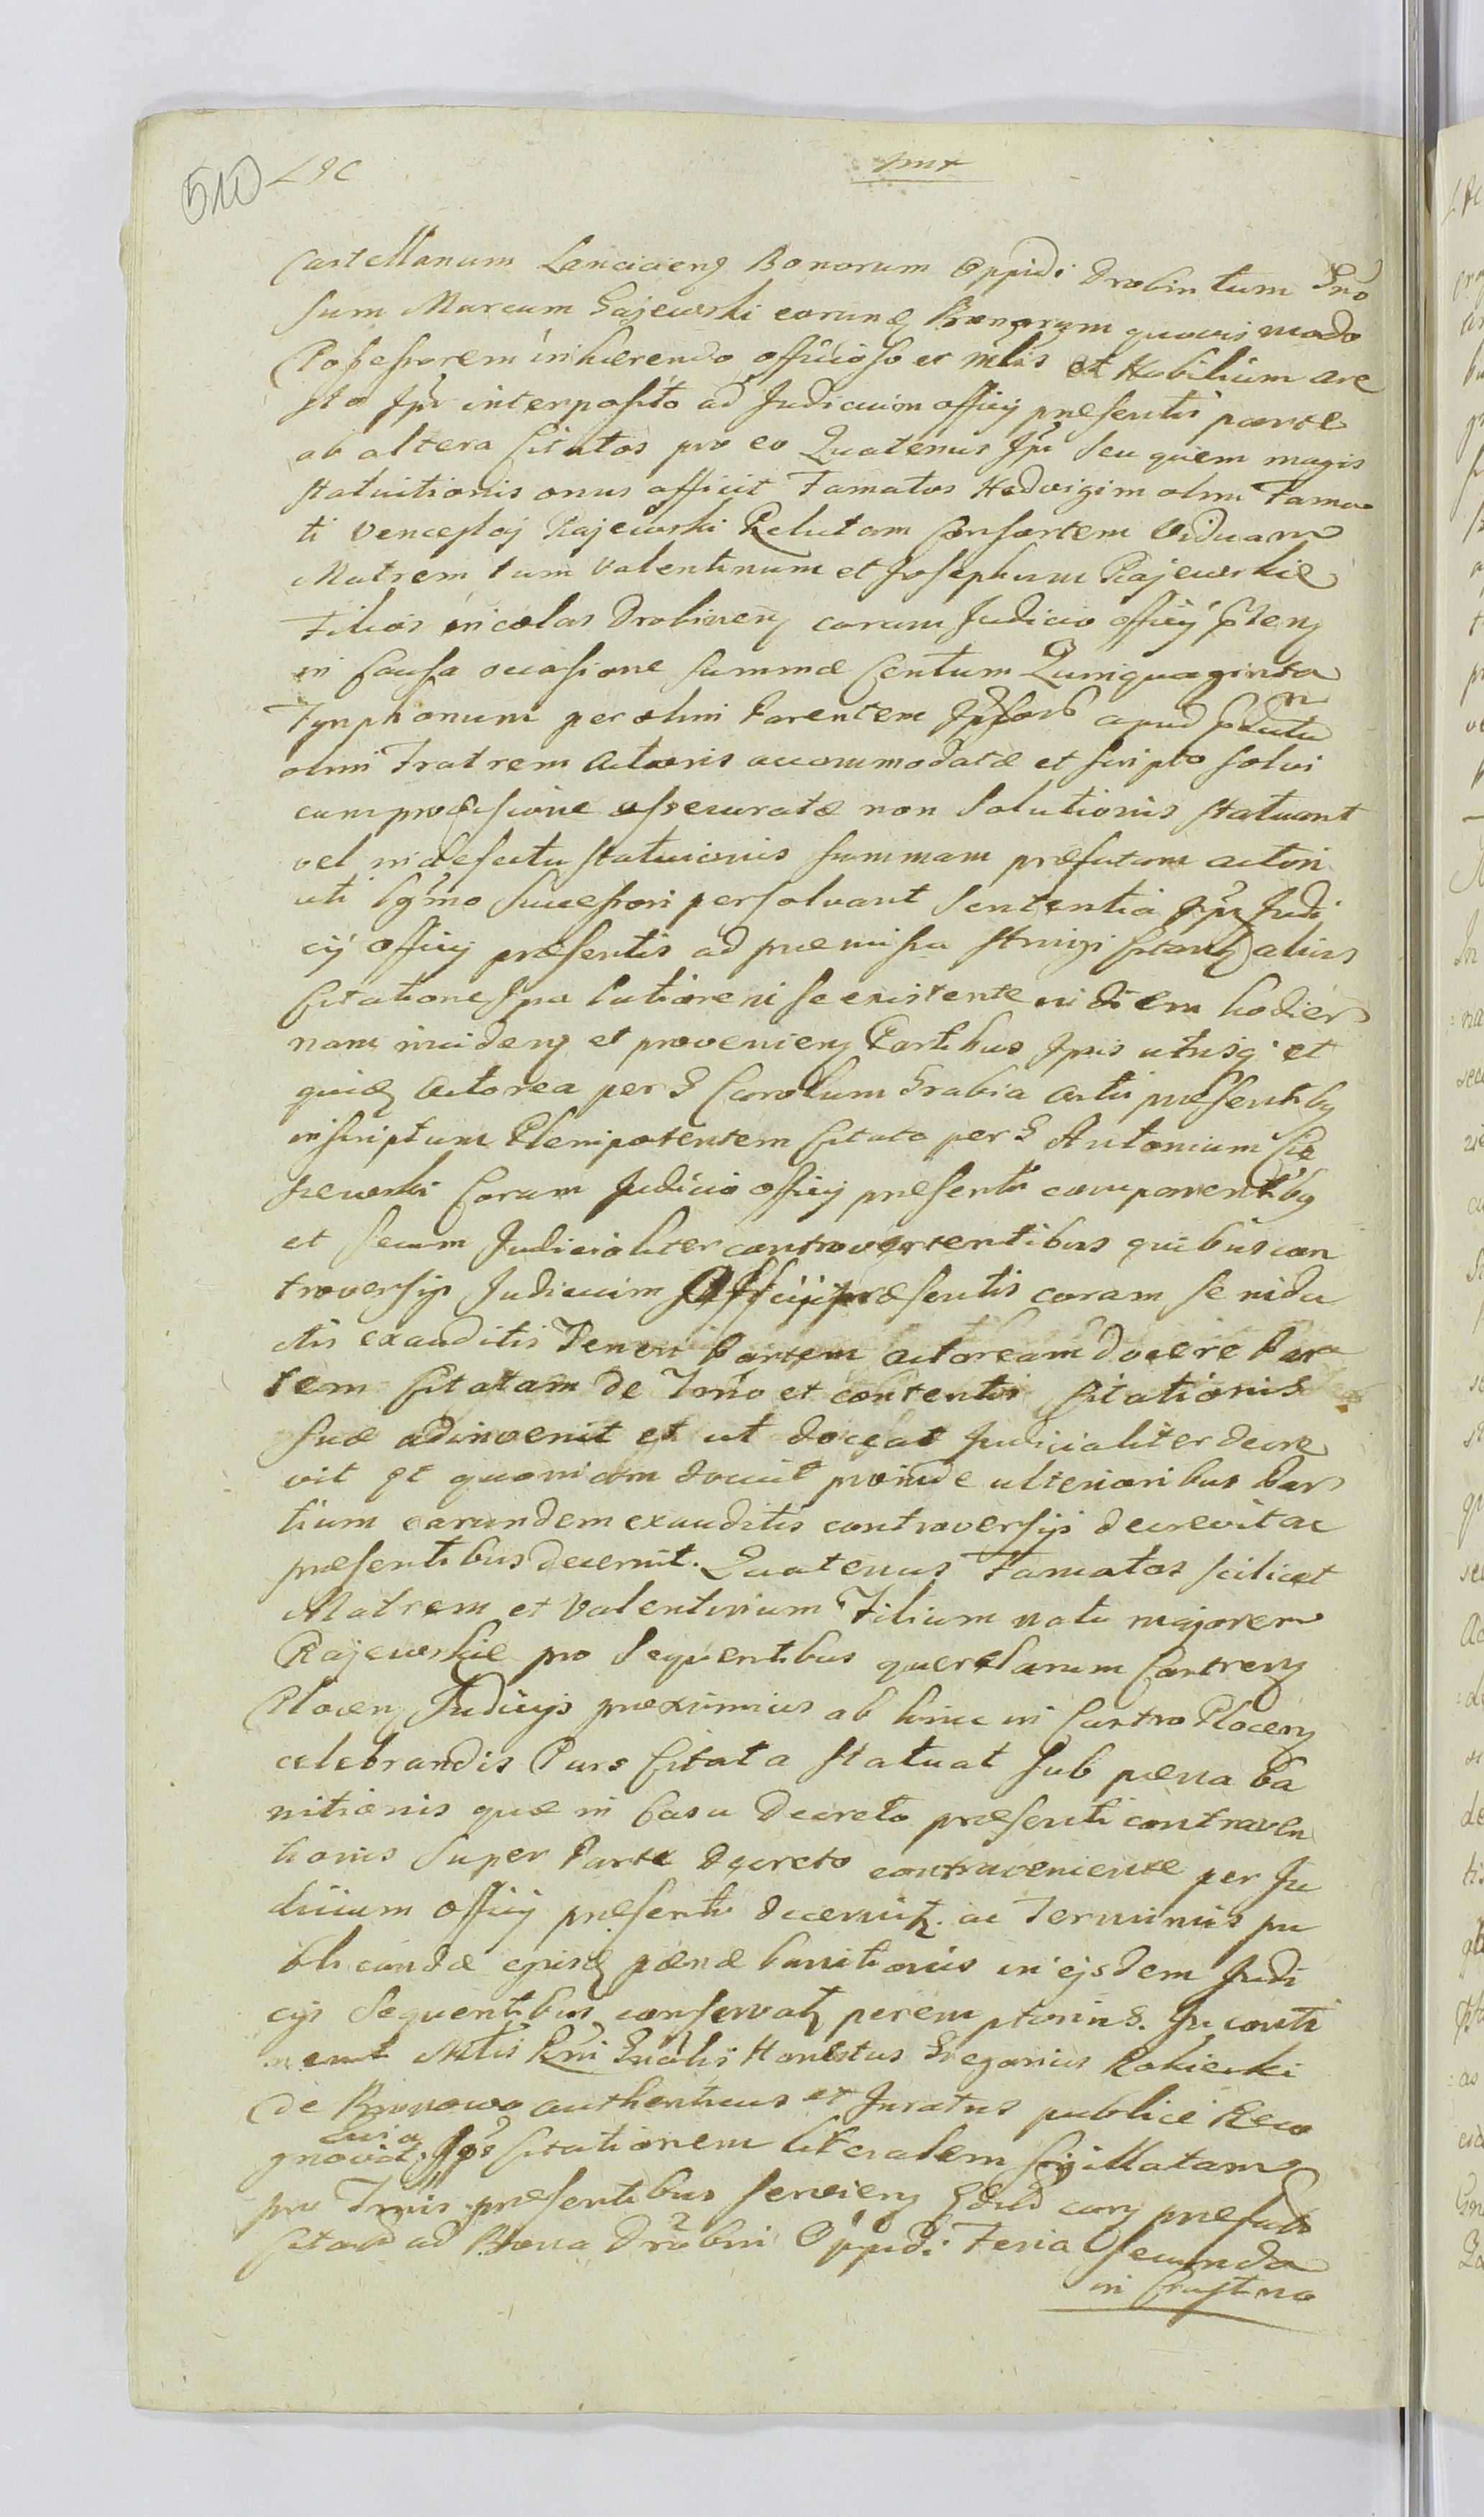 510
Castellanum Lanciciens Bonorum Oppidi Drobin tum Gnō
sum Marcum Gajewski eorunq Bonorum quovis modo
Possessorem inhaerendo officioso et Mltis et Nobilium are
sto Ipi interposito ad Judicium officij praesentis parte
ab altera Citatos pro eo Quatenus Ipi seu quem magis
statuitionis onus afficit Famatos Hedvigim olim Fama
ti Venceslaj Rajewski Relictam Consortem Viduam
Matrem tum Valentinum et Josephum Rajewskie
Filios incolas Drobinens coram Judicio officij
in Causa occasione summae Centum Quinquaginta
Tynphonum per olim Parentem apud
olim Fratrem Actoris accommodatae et scripto solvi
cum provisione assecuratae non solutionis statuant
vel in defectu statuicionis summam praefatam actori
uti lgmo Successori persolvant Sententia Judi
cij officij praesentis ad praemissa stringi alias
Citatione Ipa latiore in se existente in diem hodier
nam incidens et proveniens Partibus Ipsis utrisq et
quidq Actorea per G Carolum Grabia Actis praesentibq
inscriptum Plenipotentem Citata per G Antonium Cie
szewski Coram Judicio officij praesenti comparentibq
et secum Judicialiter controvertentibus quibus con
troversijs Judicium Officij praesentis coram se indu
ctis exauditis Teneri Partem actoream docere Par
tem Citatam de Tenō et contentis Citationis
suae adinvenit et ut doceat Judicialiter decre
vit Et quoniam docuit proinde ulterioribus Par
tium earundem exauditis controversijs decrevit ac
praesentibus decernit. Quatenus Famatos scilicet
Matrem et Valentinum Filium natu majorem
Rajewskie pro Sequentibus querelarum Castrens
Plocens Judicijs proximius ab hinc in Castro Plocens
celebrandis Pars Citata statuat sub paena ba
nitionis quae in Casu Decreto praesenti contraven
tionis Super Parte Decreto contraveniente per Ju
dicium officij praesentis decernitq. ac Terminus pu
blicandae ejusq paenae banitionis in ejsdem Judi
cijs Sequentibus conservatq peremptorius. In conti
nenti Mtis Rni Gnalis Honestus Gregorius Rokicki
de Runowo authenticus et Juratus publice Reco
gnovit. Quia Ips Citationem literalem sigillatam
pro Tmis praesentibus serviens praefatos
Citatos ad Bona Drobni Oppidi Feria Secunda
in Crastino